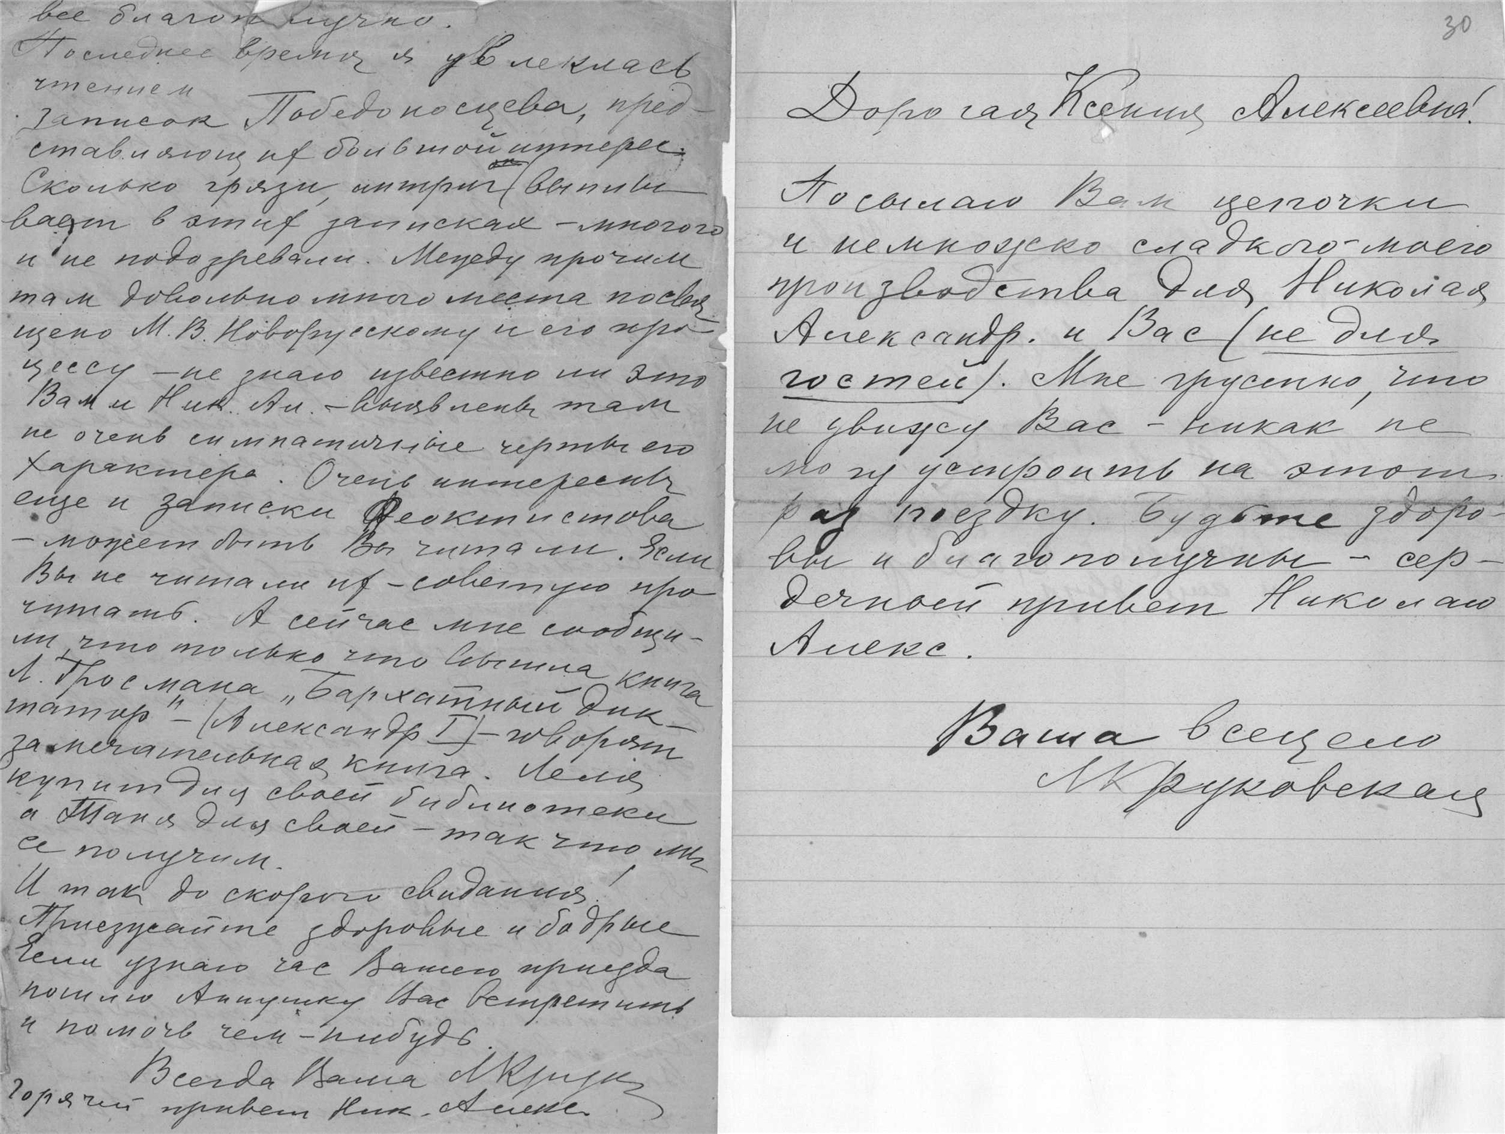 все благополучно.
Последнее время я увлеклась
чтением
записок Победоносцева, пред-
ставляющих большой интерес.
Сколько грязи, интриг выплы
вает в этих записках – многого
и не подозревали. Между прочим
там довольно много места посвя
щено М. В. Новорусскому и его про-
цессу – не знаю известно ли это
Вам и Ник. Ал. – выявлены там
не очень симпатичные черты его
характера. Очень интересны
еще и записки Феоктистова
– может быть Вы читали. Если
Вы не читали их – советую про
читать. А сейчас мне сообщи-
ли, что только что вышла книга
Л. Гросмана „Бархатный дик-
татор" – (Александр I) – говорят
замечательная книга. Леля
купит для своей библиотеки
а Таня для своей – так что мы
ее получим.
И так до скорого свидания!
Приезжайте здоровые и бодрые
Если узнаю час Вашего приезда
пошлю Аннушку Вас встретить
и помочь чем-нибудь.
Всегда Ваша МКрук
Горячий привет Ник. Алекс.
30
Дорогая Ксения Алексеевна!
Посылаю Вам цепочки
и немножко сладкого – моего
производства для Николая
Александр. и Вас (не для
гостей). Мне грустно, что
не увижу Вас – никак не
могу устроить на этот
раз поездку. Будьте здоро-
вы и благополучны – сер-
дечный привет Николаю
Алекс.
Ваша всецело
МКруковская